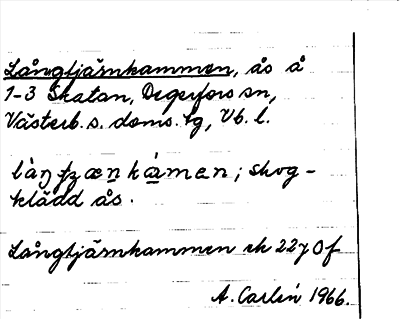 Långtjärnkammen, ås å
1-3 Skatan, Degerfors sn,
Västerb. s. doms. tg, Vb. l.
làŋtjæṇkámen; skog-
klädd ås.
Långtjärnkammen ek 22J Of
A. Carlén 1966.